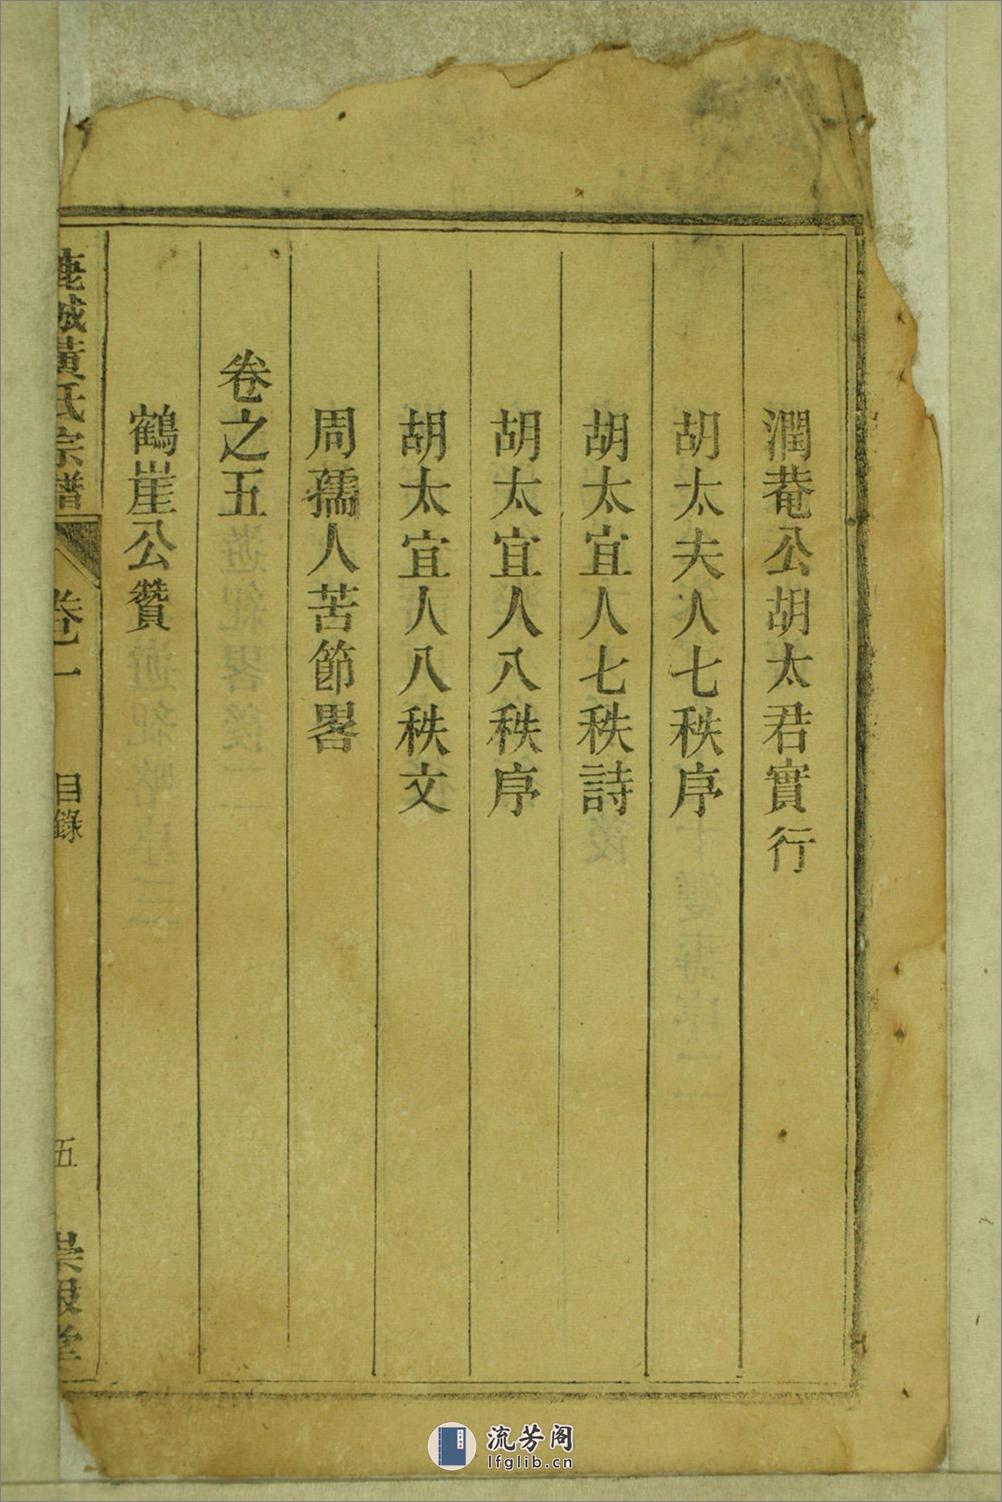 潤菴公胡太君實行
胡太夫人七秩序
胡太宜人七秩詩
胡太宜人八秩序
胡太宜人八秩文
周孺人苦節畧
卷之五
鶴崖公贊
鹿城黃氏宗譜
卷一
目錄
五
崇報堂
流芳阁
lfglib.cn